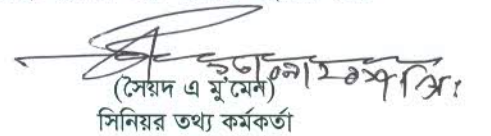 (সৈয়দ এ মু'মেন)
সিনিয়র তথ্য কর্মকর্তা